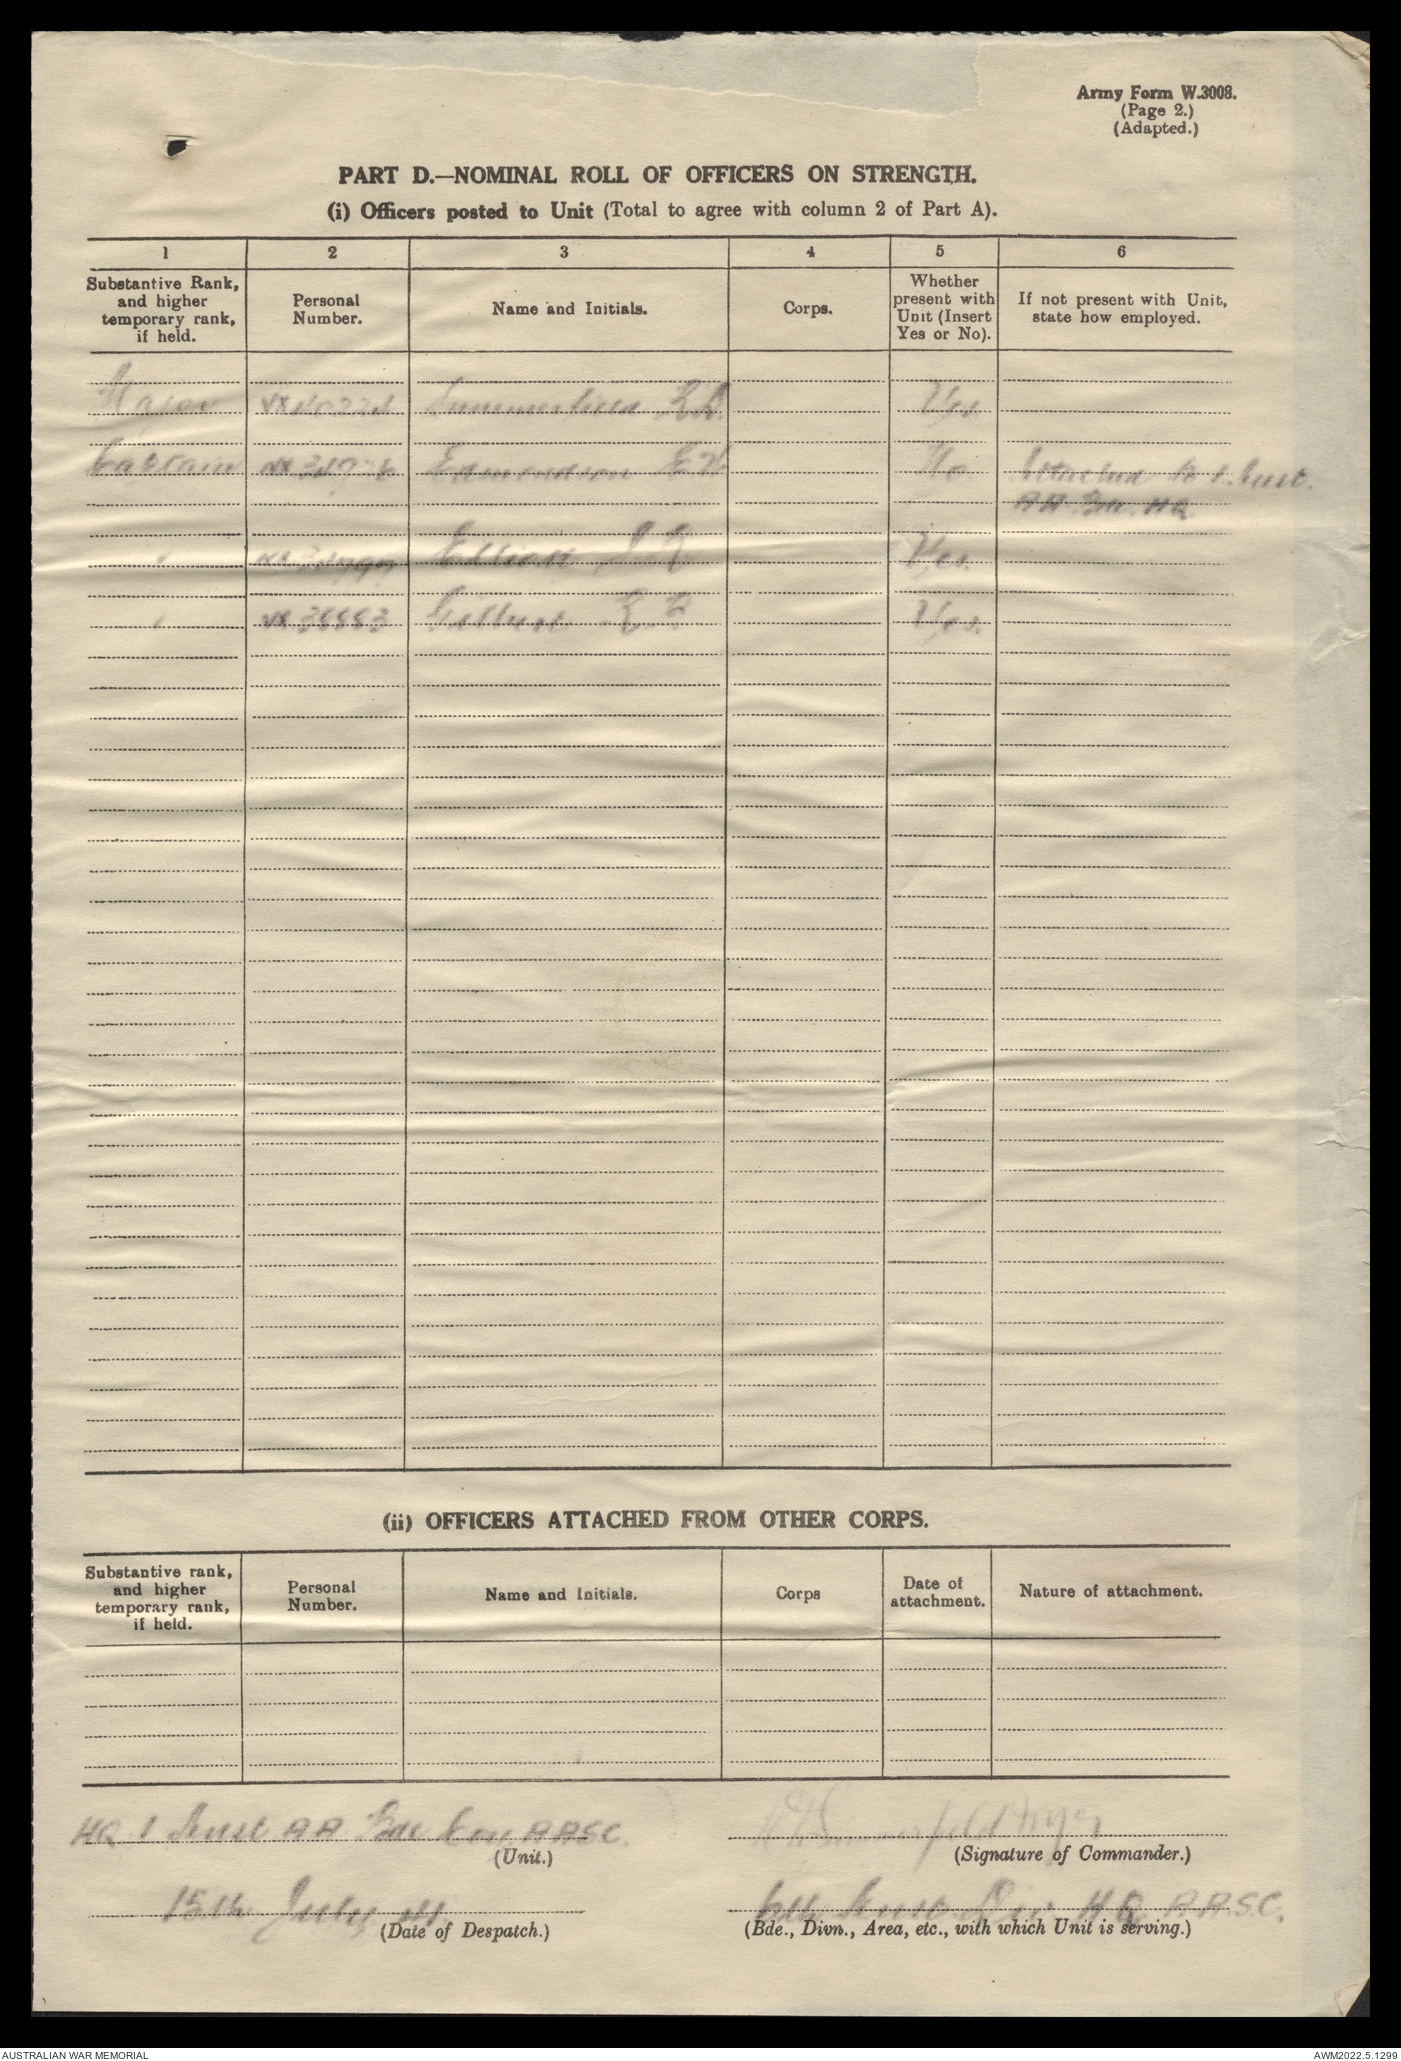 Army Form W.3008.
(Page 2.)
(Adapted.)
PART D.—NOMINAL ROLL OF OFFICERS ON STRENGTH.
(i) Officers posted to Unit (Total to agree with column 2 of Part A).
1 2 3 4 5 6
Substantive Rank, and higher temporary rank, if held.
Personal Number.
Name and Initials.
Corps.
Whether present with Unit (Insert Yes or No).
If not present with Unit, state how employed.
Major Yes
Captain Edmondson No Attached to 1 Aust.
AA. Bde. HQ
Elliott Yes.
VX 38883 Gilbert Yes.
(ii) OFFICERS ATTACHED FROM OTHER CORPS.
Substantive rank, and higher temporary rank, if held.
Personal Number.
Name and Initials.
Corps
Date of attachment.
Nature of attachment.
HQ 1 Aust AA Bde Coy. AASC.
(Unit.)
(Signature of Commander.)
15th July 41
(Date of Despatch.)
6th Aust. Div HQ AASC.
(Bde., Divn., Area, etc., with which Unit is serving.)
AUSTRALIAN WAR MEMORIAL
AWM2022.5.1299